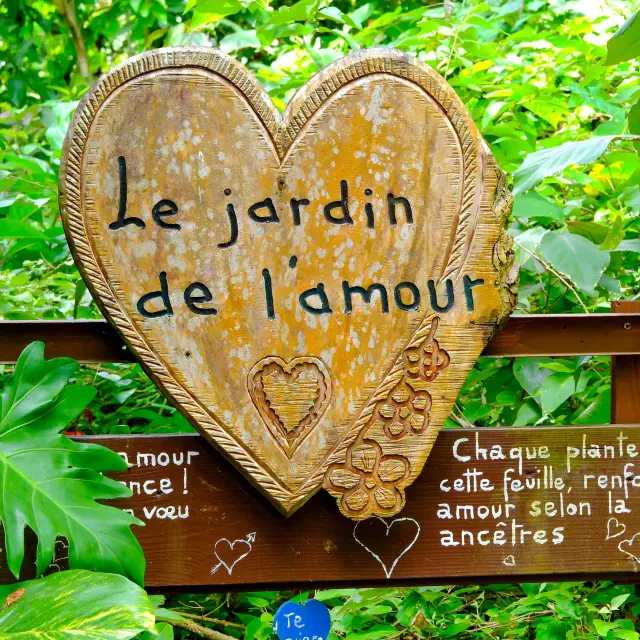 Le jardin
de l'amour
amour
!
vœu
Chaque plante
cette feuille,
amour selon la
ancêtres
Te